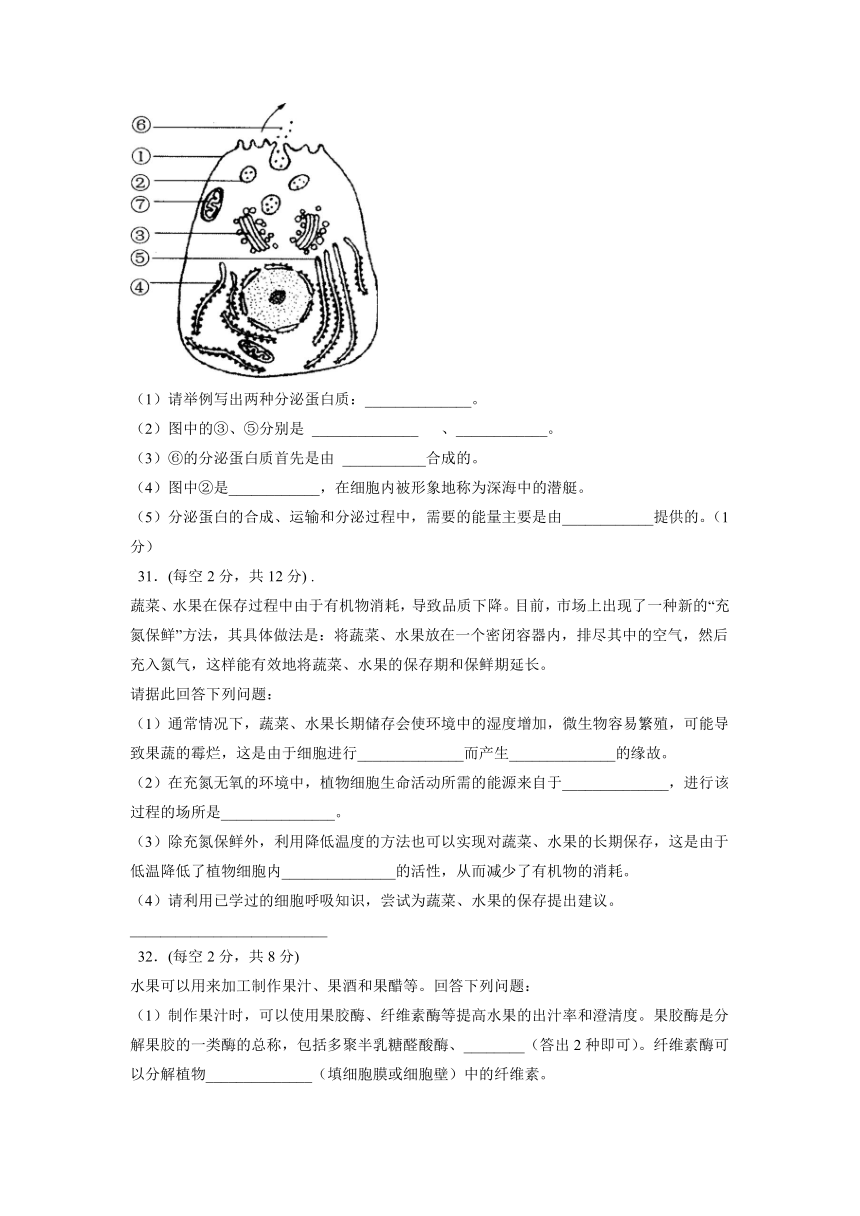 ⑥
①
②
⑦
③
⑤
④
（1）请举例写出两种分泌蛋白质：______________。
（2）图中的③、⑤分别是 ______________ 、____________。
（3）⑥的分泌蛋白质首先是由 ___________合成的。
（4）图中②是____________，在细胞内被形象地称为深海中的潜艇。
（5）分泌蛋白的合成、运输和分泌过程中，需要的能量主要是由____________提供的。（1
分）
31．(每空 2 分，共 12 分) .
蔬菜、水果在保存过程中由于有机物消耗，导致品质下降。目前，市场上出现了一种新的“充
氮保鲜”方法，其具体做法是：将蔬菜、水果放在一个密闭容器内，排尽其中的空气，然后
充入氮气，这样能有效地将蔬菜、水果的保存期和保鲜期延长。
请据此回答下列问题：
（1）通常情况下，蔬菜、水果长期储存会使环境中的湿度增加，微生物容易繁殖，可能导
致果蔬的霉烂，这是由于细胞进行______________而产生______________的缘故。
（2）在充氮无氧的环境中，植物细胞生命活动所需的能源来自于______________，进行该
过程的场所是_______________。
（3）除充氮保鲜外，利用降低温度的方法也可以实现对蔬菜、水果的长期保存，这是由于
低温降低了植物细胞内_______________的活性，从而减少了有机物的消耗。
（4）请利用已学过的细胞呼吸知识，尝试为蔬菜、水果的保存提出建议。
__________________________
32．(每空 2 分，共 8 分)
水果可以用来加工制作果汁、果酒和果醋等。回答下列问题：
（1）制作果汁时，可以使用果胶酶、纤维素酶等提高水果的出汁率和澄清度。果胶酶是分
解果胶的一类酶的总称，包括多聚半乳糖醛酸酶、________（答出 2 种即可）。纤维素酶可
以分解植物______________（填细胞膜或细胞壁）中的纤维素。